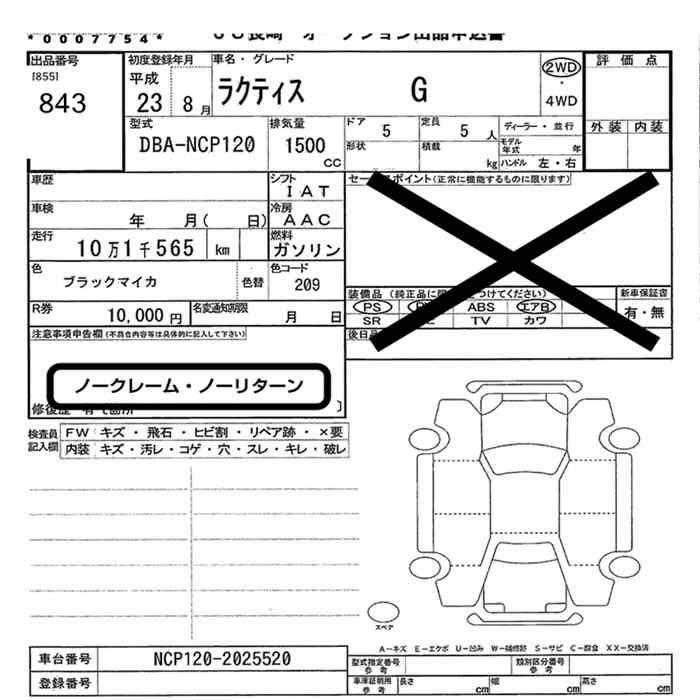 *0007754* ＪＵ長崎 オークション出品申込書
出品番号 初度登録年月 車名・グレード 評価点
[855] 平成 2WD
843 23 8月 ラクティス G ・
4WD
型式 排気量 ドア 5 定員 5人 ディーラー・並行 外装 内装
DBA-NCP120 1500 CC 形状 積載 kg モデル年式 年
ハンドル 左・右
車歴 シフト IAT セールスポイント(正常に機能するものに限ります)
車検 年 月( 日) 冷房 AAC
走行 10万1千565 km 燃料 ガソリン
色 ブラックマイカ 色替 色コード 209
R券 10,000円 名変通知期限 月 日
装備品 (純正品に限 つけてください) 新車保証書
PS ABS エアB 有・無
SR TV カワ
注意事項申告欄(不具合内容等は具体的に記入して下さい) 後日品
ノークレーム・ノーリターン
修復歴 有 箇所
検査員記入欄 FW キズ・飛石・ヒビ割・リペア跡・×要
内装 キズ・汚レ・コゲ・穴・スレ・キレ・破レ
スペア
A－キズ E－エクボ U－凹み W－補修跡 S－サビ C－腐食 XX－交換済
車台番号 NCP120-2025520
登録番号
型式指定番号 参考 類別区分番号 参考
車庫証明用 参考 長さ cm 幅 cm 高さ cm